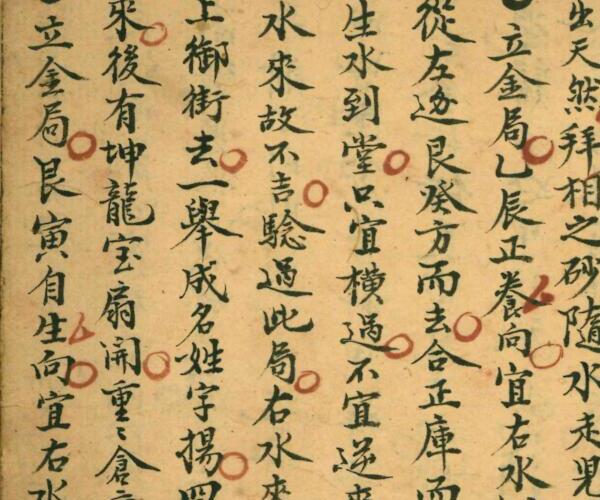 出天然拜相之砂隨水走見
立金局乙辰正養向宜右水
從左边艮癸方而去合正庫而
生水到堂只宜橫過不宜逆來
水來故不吉驗過此局右水來
上御街去一舉成名姓字揚四
來後有坤龍宝扇開重〻倉
立金局艮寅自生向宜右水